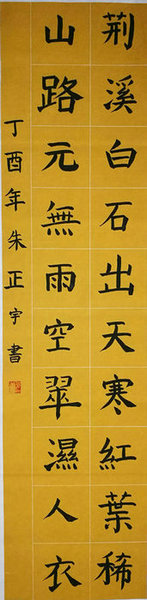 荆溪白石出天寒紅葉稀
山路元無雨空翠濕人衣
丁酉年朱正宇書